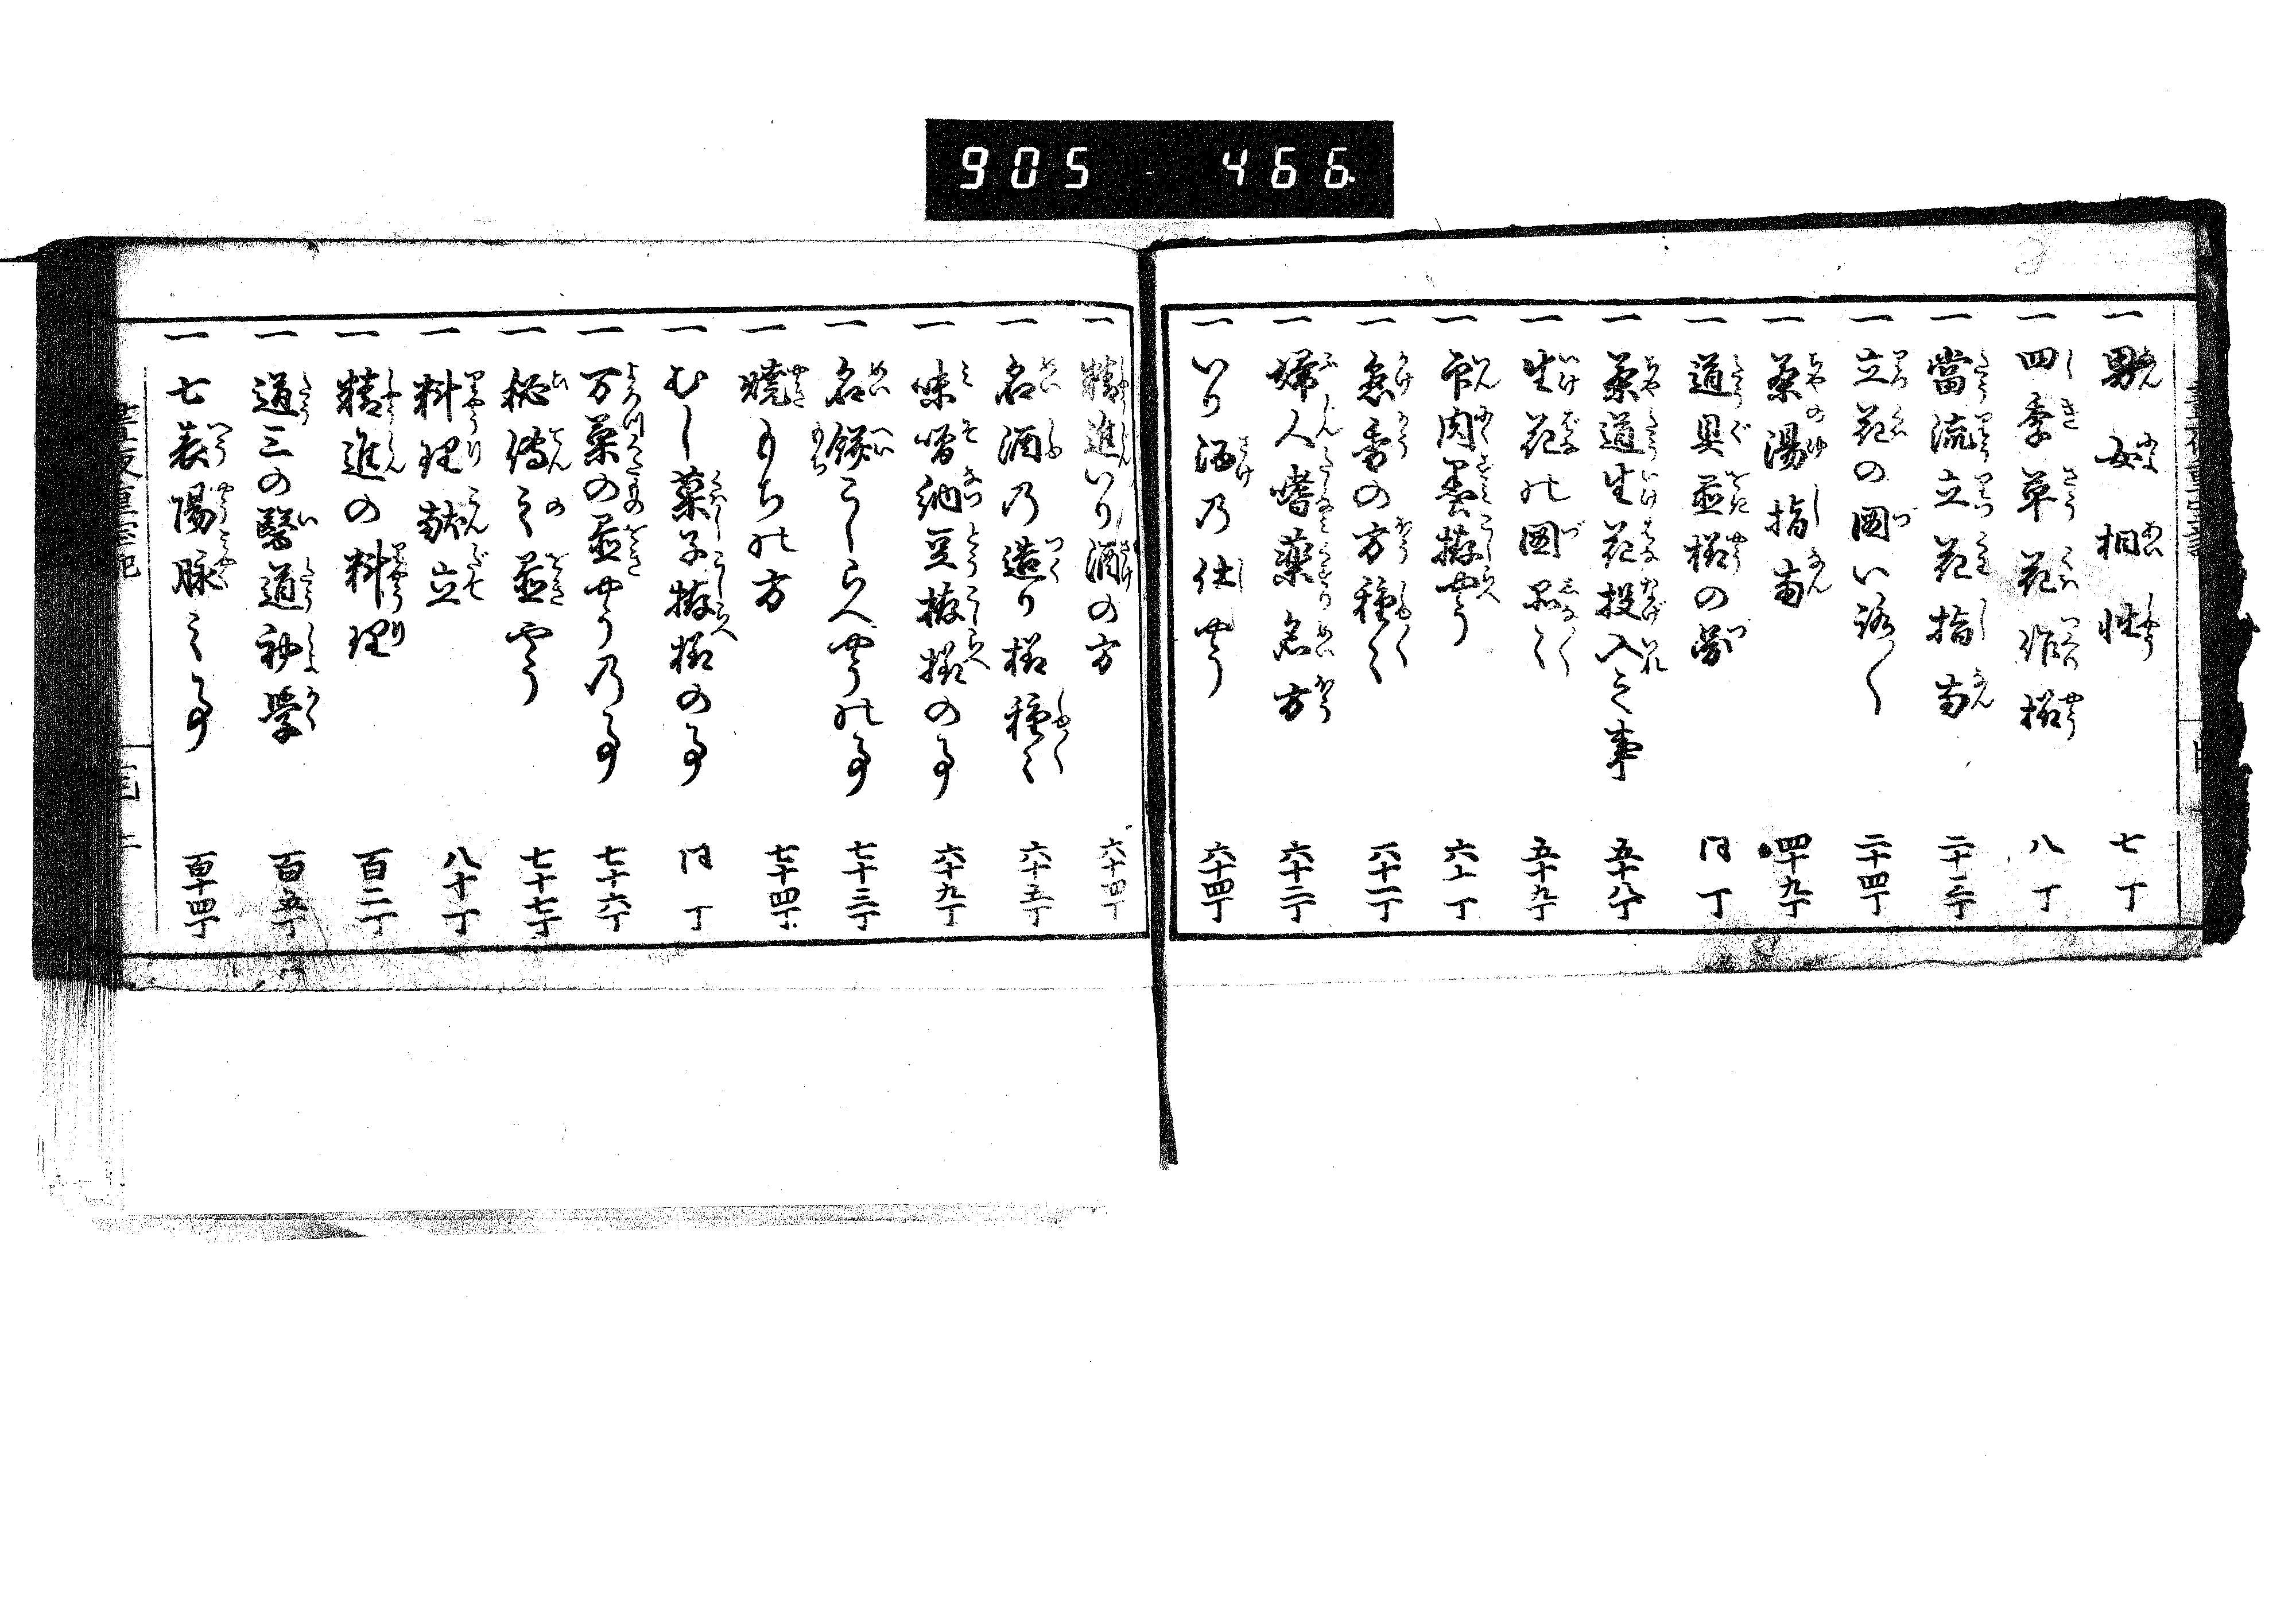 905 - 466
一男女相性 七丁
一四季草花作様 八丁
一當流立花指南 二十三丁
一立花の圖いろ〱 二十四丁
一茶湯指南 四十九丁
一道具並様の圖 同丁
一茶道生花投入之事 五十八丁
一生花の圖品〻 五十九丁
一印肉墨拵やう 六十丁
一懸香の方種〻 六十一丁
一婦人嗜薬名方 六十二丁
一いり酒乃仕やう 六十四丁
一精進いり酒の方 六十四丁
一名酒乃造り様種〻 六十五丁
一味噌納豆拵様の事 六十九丁
一名餅こしらへやうの事 七十三丁
一焼もちの方 七十四丁
一むし菓子拵様の事 同丁
一万菓の置やう乃事 七十六丁
一秘傳之置やう 七十七丁
一料理献立 八十丁
一精進の料理 百二丁
一道三の醫道初學 百五丁
一七表陽脉之事 百十四丁